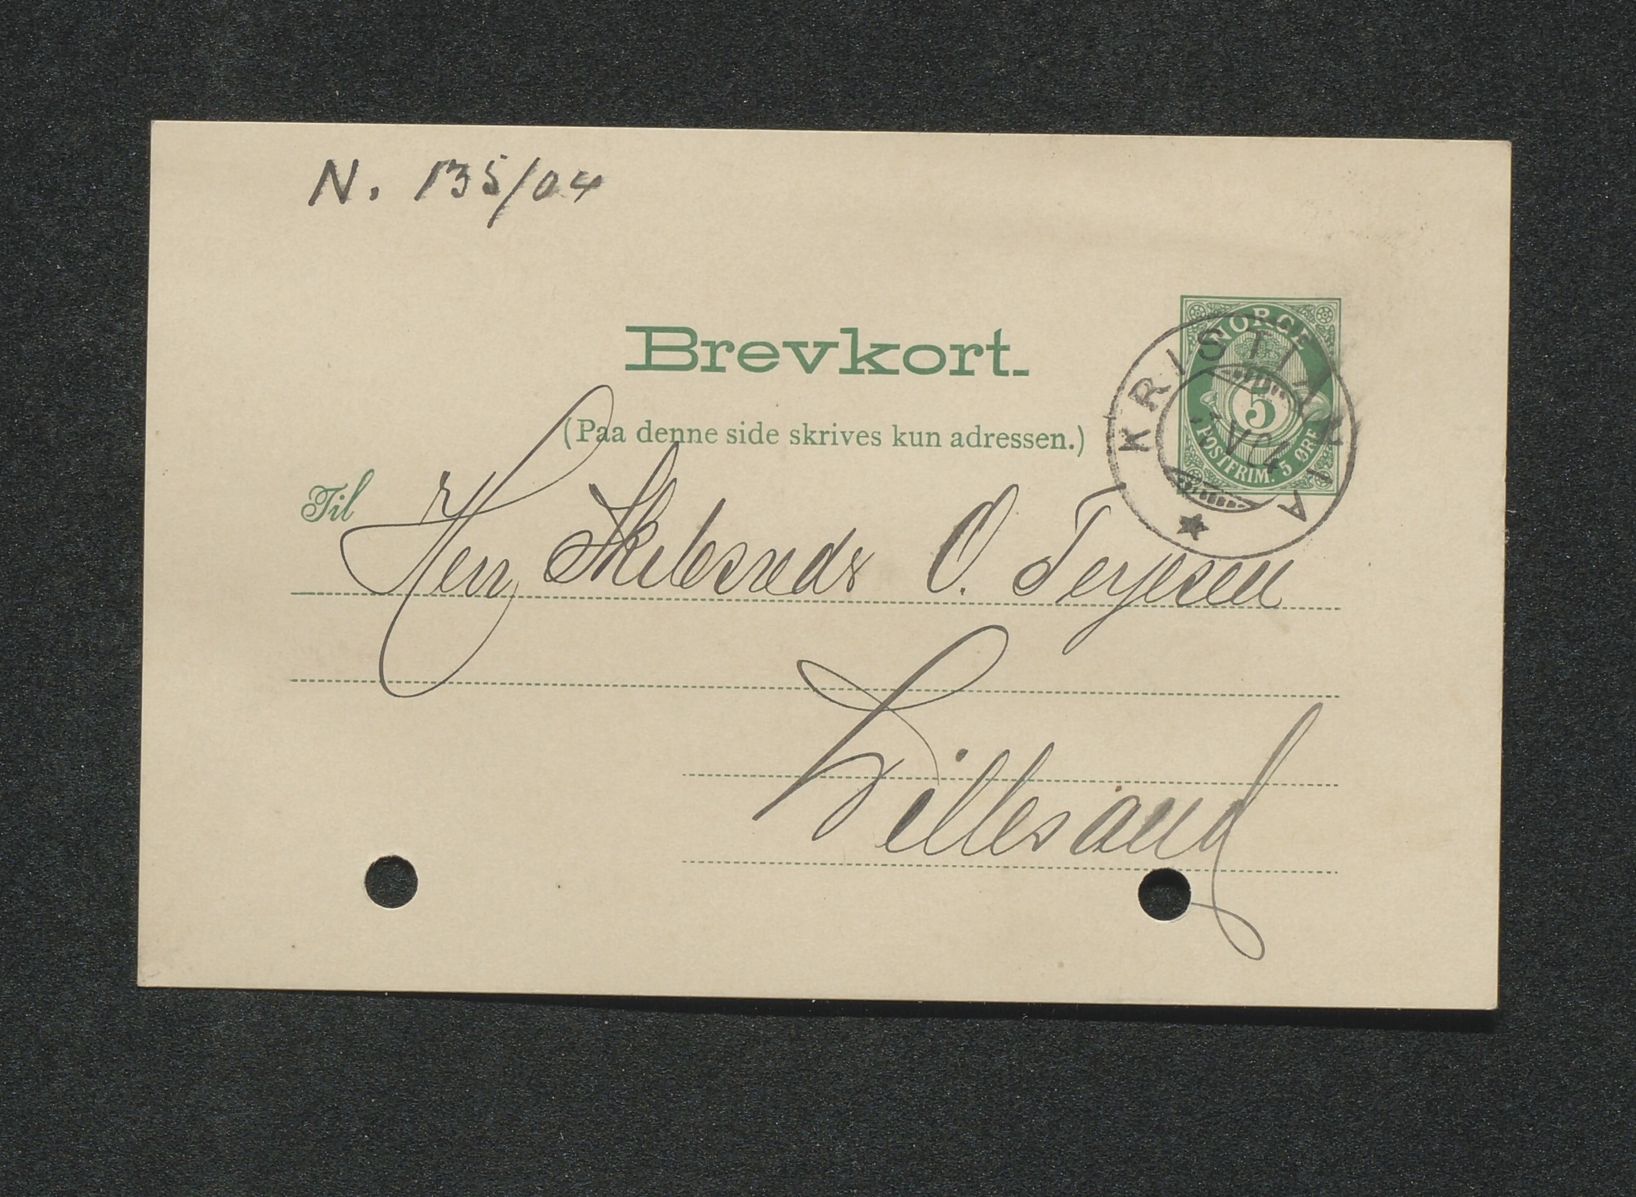 N. 135/04
Brevkort.
NORGE
5
POSTFRIM. 5 ØRE
KRISTIANIA
(Paa denne side skrives kun adressen.)
Til
Herr Skibsredr O. Terjesen
Lillesand